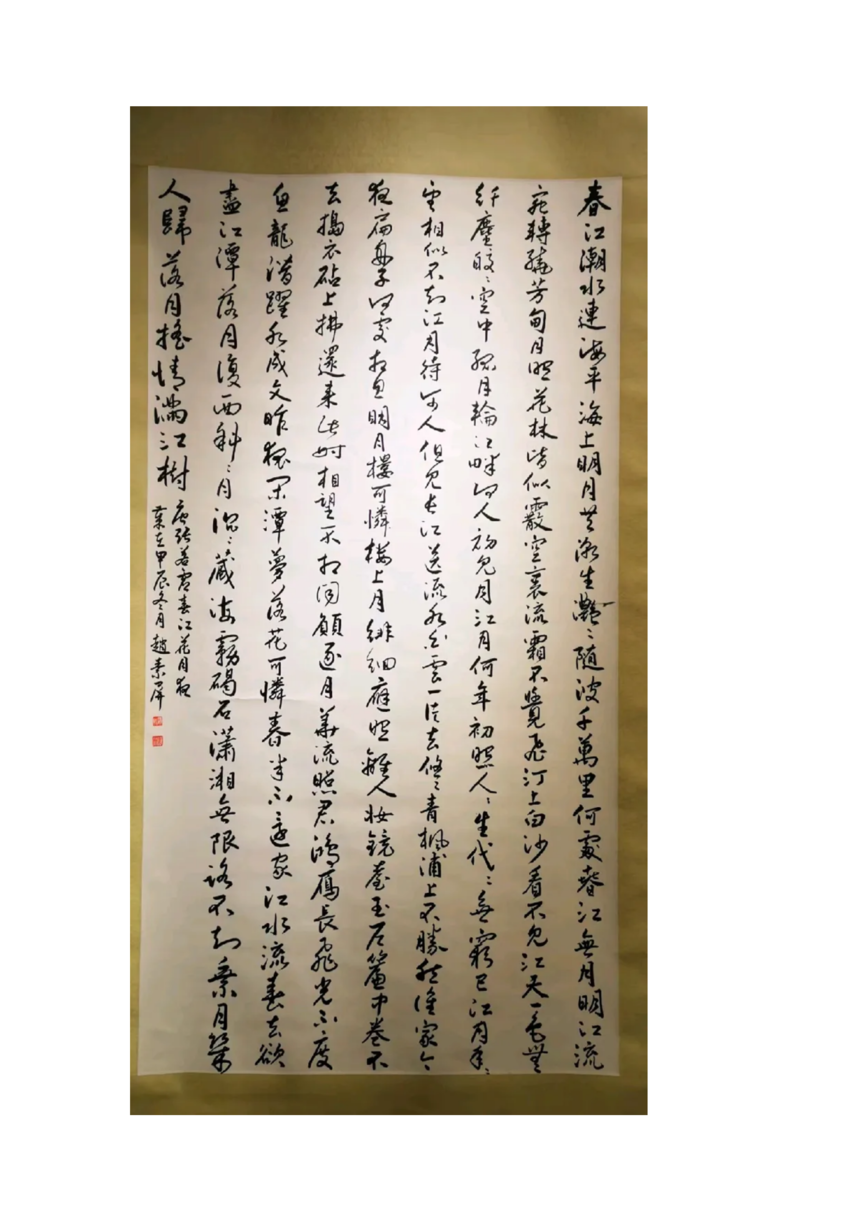 春江潮水連海平海上明月共潮生灔〻随波千萬里何處春江無月明江流
宛轉繞芳甸月照花林皆似霰空裏流霜不覺飛汀上白沙看不見江天一色無
纤塵皎〻空中孤月輪江畔何人初見月江月何年初照人〻生代〻無窮已江月年〻
望相似不知江月待何人但見長江送流水白雲一片去悠〻青楓浦上不勝愁誰家今
夜扁舟子何處相思明月樓可憐樓上月徘徊應照離人妆鏡臺玉户簾中卷不
去搗衣砧上拂還來此时相望不相聞願逐月華流照君鴻雁長飛光不度
魚龍潛躍水成文昨夜闲潭夢落花可憐春半不還家江水流春去欲
盡江潭落月復西斜〻月沉〻藏海霧碣石瀟湘無限路不知乘月幾
人歸落月搖情滿江樹
唐張若虚春江花月夜
歲在甲辰冬月趙素屏